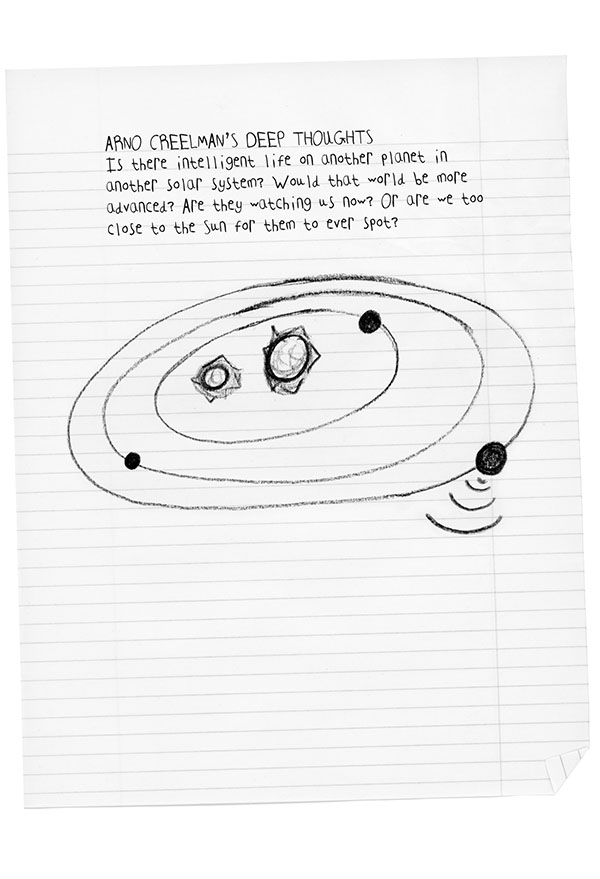 ARNO CREELMAN'S DEEP THOUGHTS
Is there intelligent life on another planet in
another solar system? Would that world be more
advanced? Are they watching us now? Or are we too
close to the sun for them to ever spot?